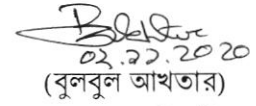 ০২.১১.২০২০
(বুলবুল আখতার)